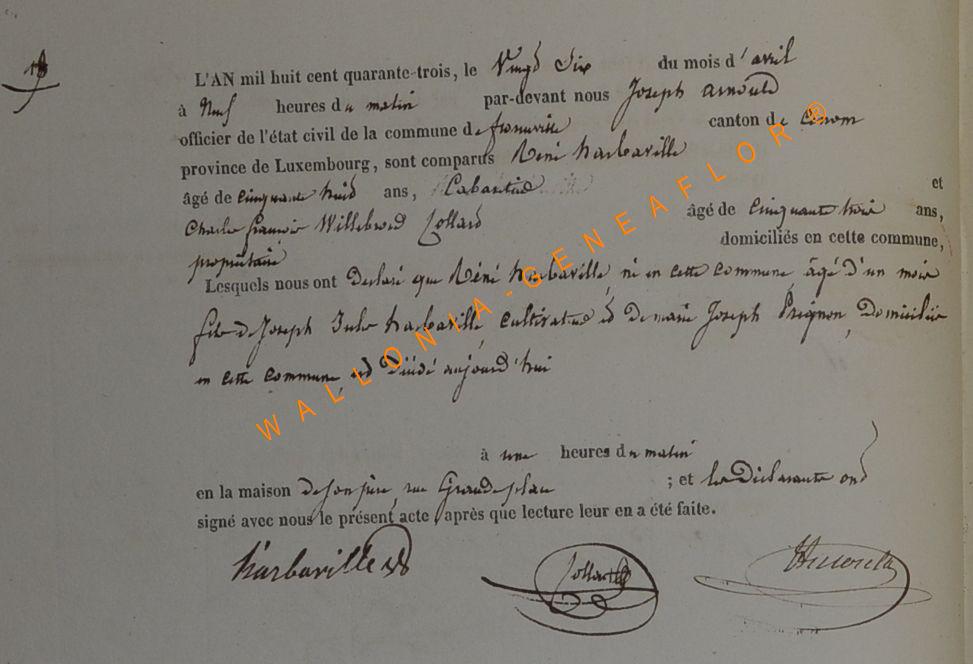 L'AN mil huit cent quarante-trois, le Vingt Six du mois d'avril
à Neuf heures du matin par-devant nous Joseph Arnould
officier de l'état civil de la commune de canton de
province de Luxembourg, sont comparus Réné harbaville
âgé de cinquante huit ans, Cabartier et
Charles françois Willebrord Collard âgé de cinquante trois ans,
propriétaire domiciliés en cette commune,
Lesquels nous ont declaré que Réné harbaville, né en cette commune âgé d'un mois
fils de Joseph Jules harbaville, cultivateur et de marie Joseph Prignon, domiciliés
en cette commune, est décédé aujourd'hui
à une heures du matin
en la maison de son père, rue Grande place ; et les déclarants ont
signé avec nous le présent acte, après que lecture leur en a été faite.
harbaville Collard Arnould
WALLONIA-GENEAFLOR ®